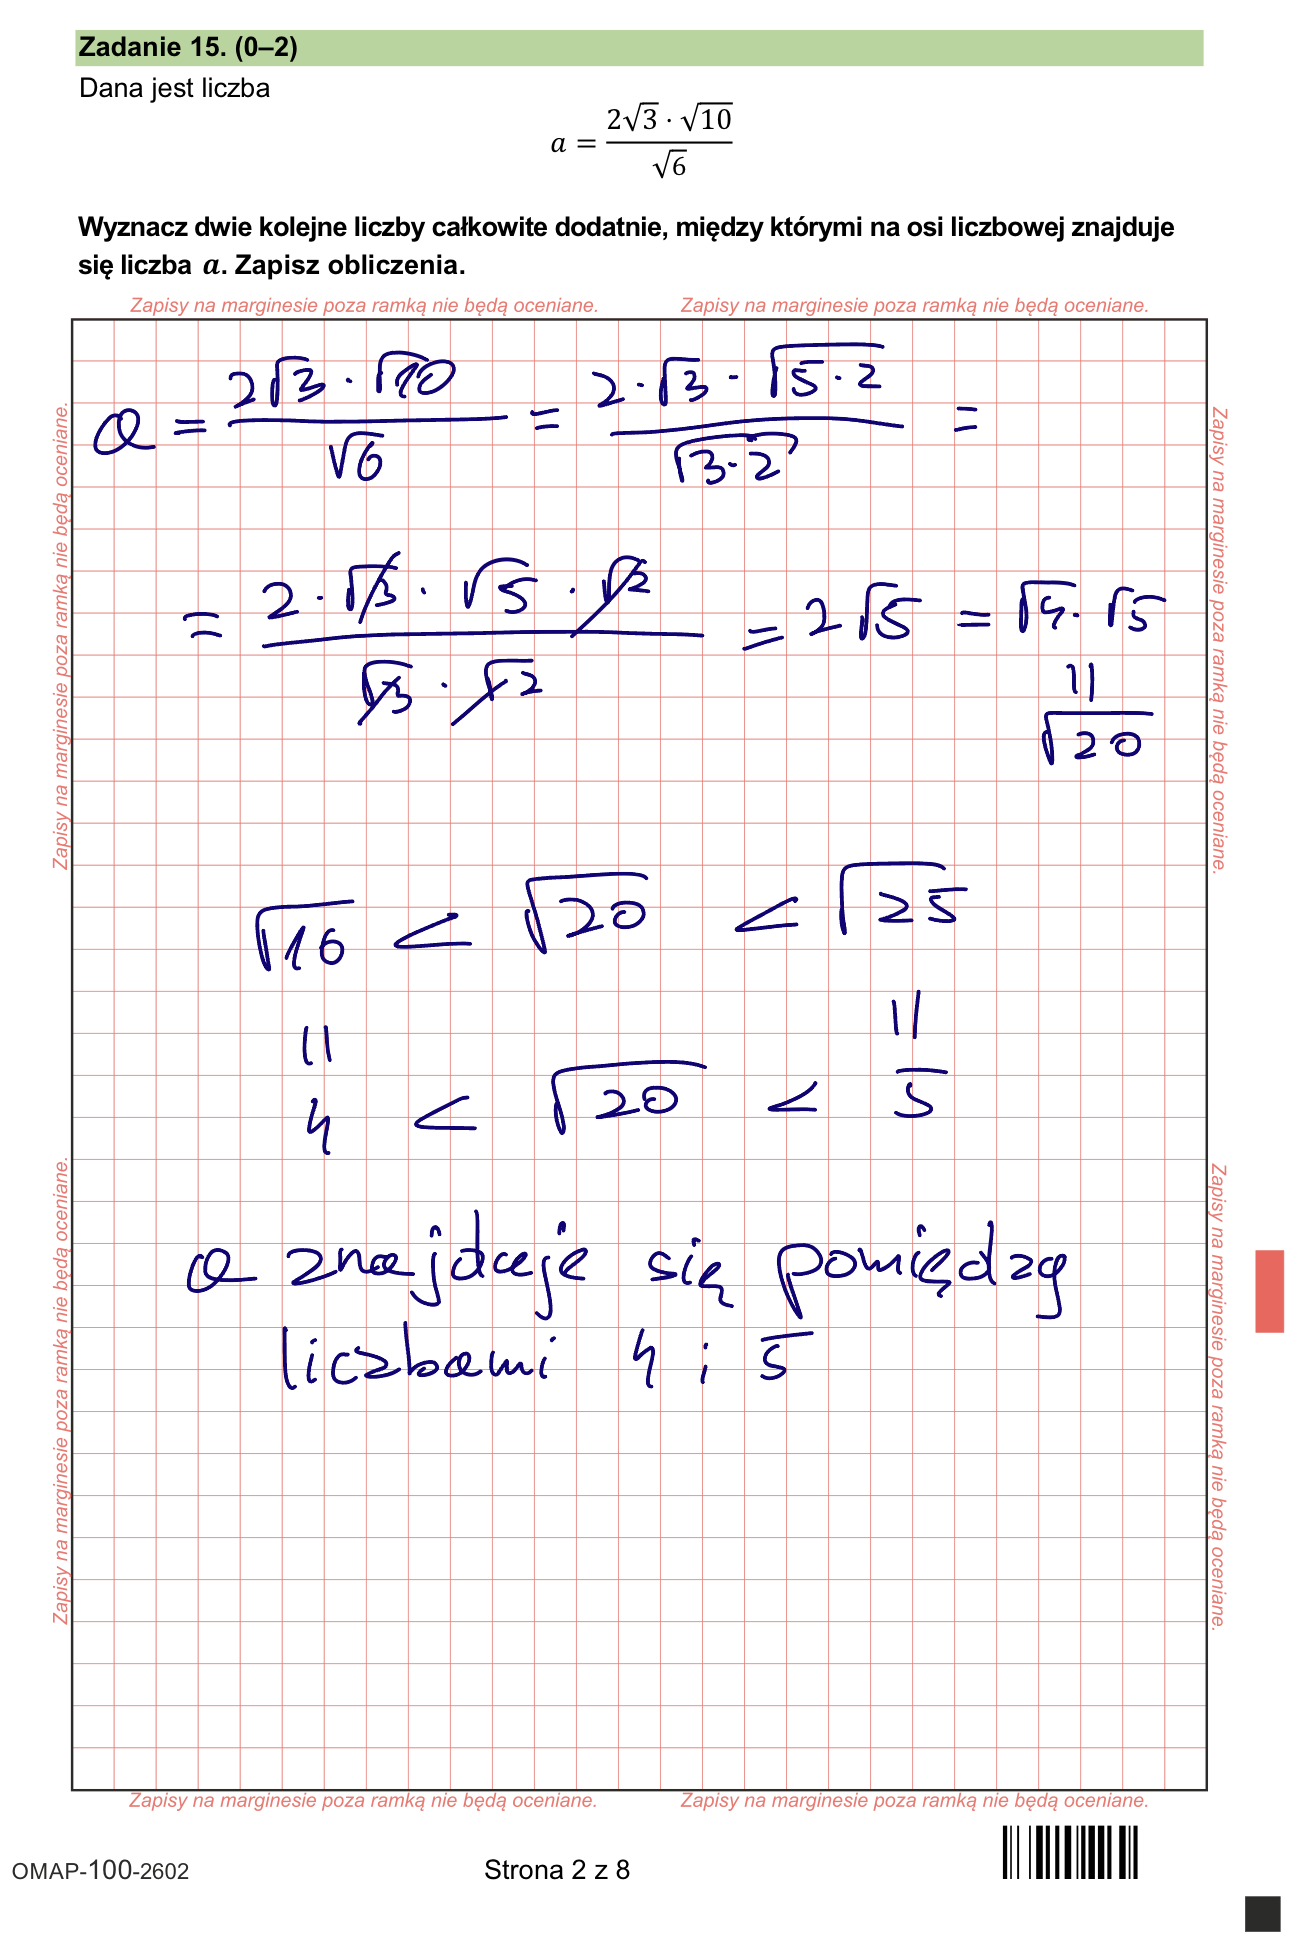 Zadanie 15. (0–2)
Dana jest liczba
a = (2√3 · √10) / √6
Wyznacz dwie kolejne liczby całkowite dodatnie, między którymi na osi liczbowej znajduje
się liczba a. Zapisz obliczenia.
Zapisy na marginesie poza ramką nie będą oceniane. Zapisy na marginesie poza ramką nie będą oceniane.
Zapisy na marginesie poza ramką nie będą oceniane.
Zapisy na marginesie poza ramką nie będą oceniane.
a = (2√3 · √10) / √6 = (2 · √3 · √(5 · 2)) / √(3 · 2) =
= (2 · √3 · √5 · √2) / (√3 · √2) = 2√5 = √4 · √5
=
√20
√16 < √20 < √25
= =
4 < √20 < 5
a znajduje się pomiędzy
liczbami 4 i 5
Zapisy na marginesie poza ramką nie będą oceniane.
Zapisy na marginesie poza ramką nie będą oceniane.
Zapisy na marginesie poza ramką nie będą oceniane. Zapisy na marginesie poza ramką nie będą oceniane.
OMAP-100-2602 Strona 2 z 8